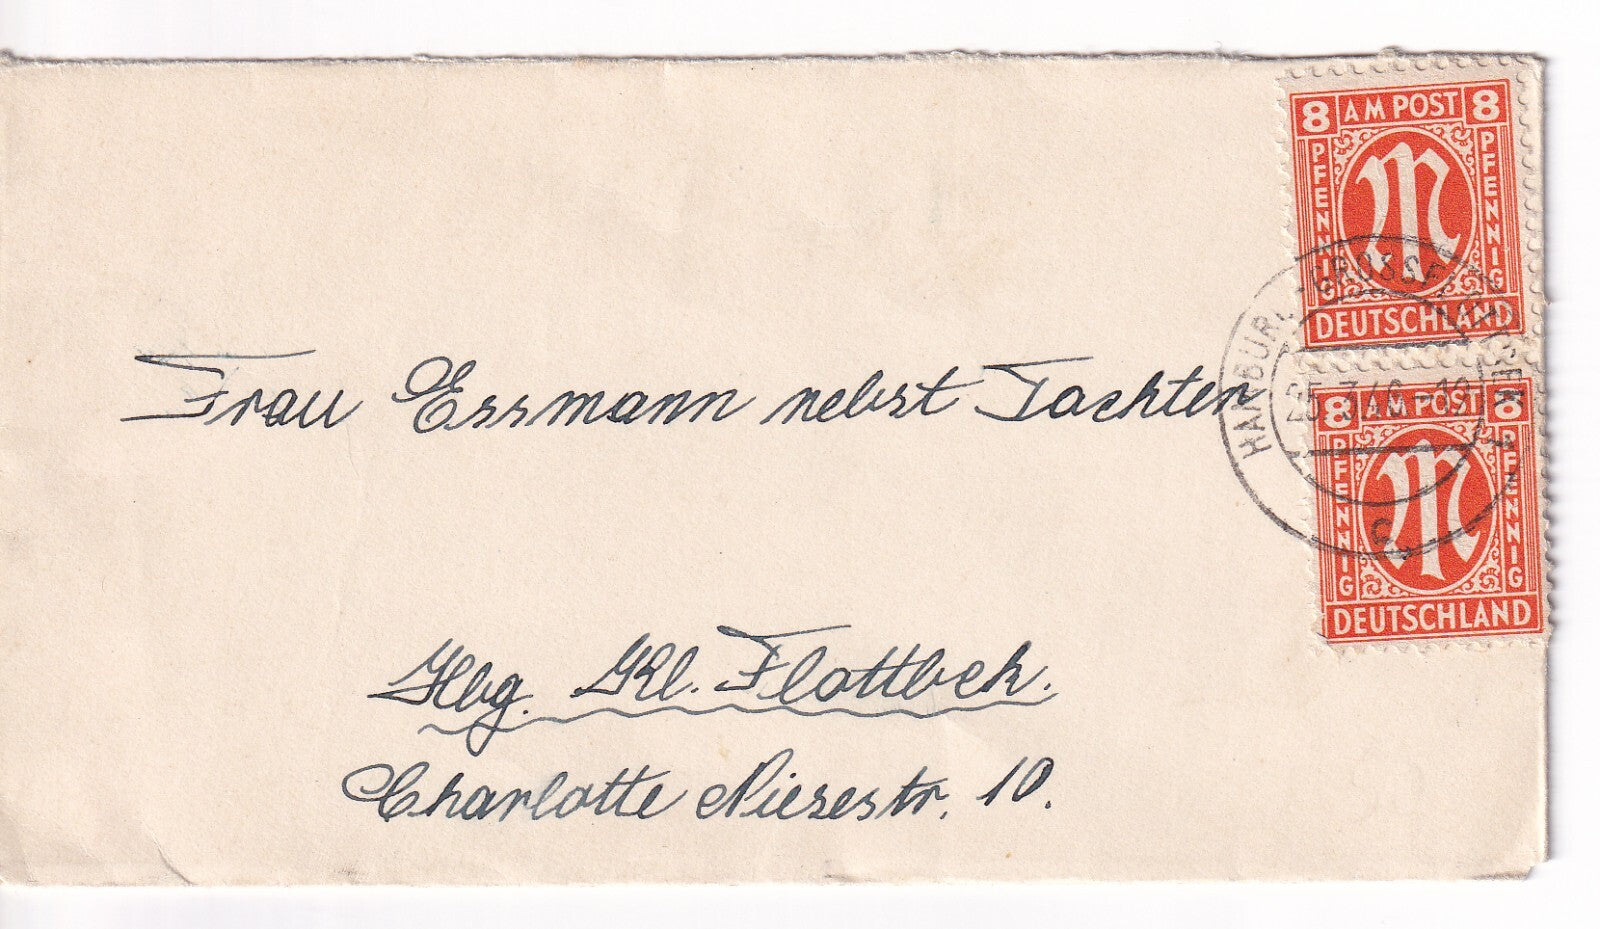 8 AM POST 8
PFENNIG
M
PFENNIG
DEUTSCHLAND
HAMBURG-GROSSFLOTTBEK 1
25.3.46.-19
c
8 AM POST 8
PFENNIG
M
PFENNIG
DEUTSCHLAND
Frau Essmann nebst Tochter
Hbg. Kl. Flottbek.
Charlotte Niesestr. 10.